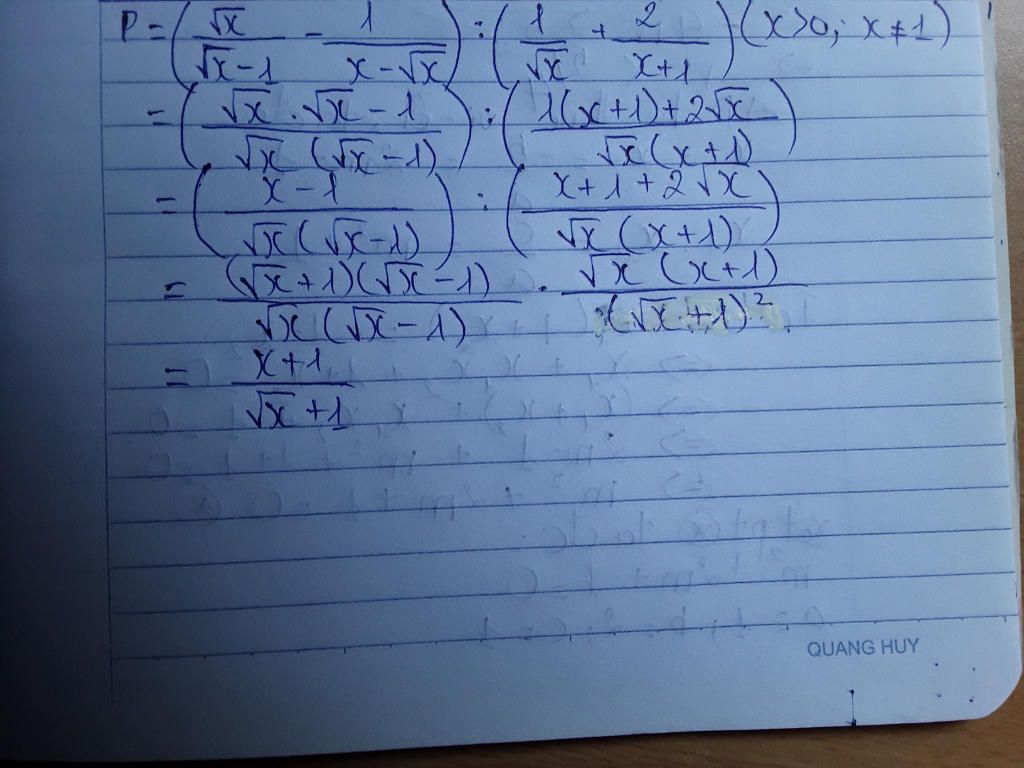 P = (√x/(√x-1) - 1/(x-√x)) : (1/√x + 2/(x+1)) (x>0; x≠1)
= ((√x.√x-1)/(√x(√x-1))) : ((1(x+1)+2√x)/(√x(x+1)))
= ((x-1)/(√x(√x-1))) : ((x+1+2√x)/(√x(x+1)))
= ((√x+1)(√x-1))/(√x(√x-1)) . (√x(x+1))/((√x+1)²)
= (x+1)/(√x+1)
QUANG HUY